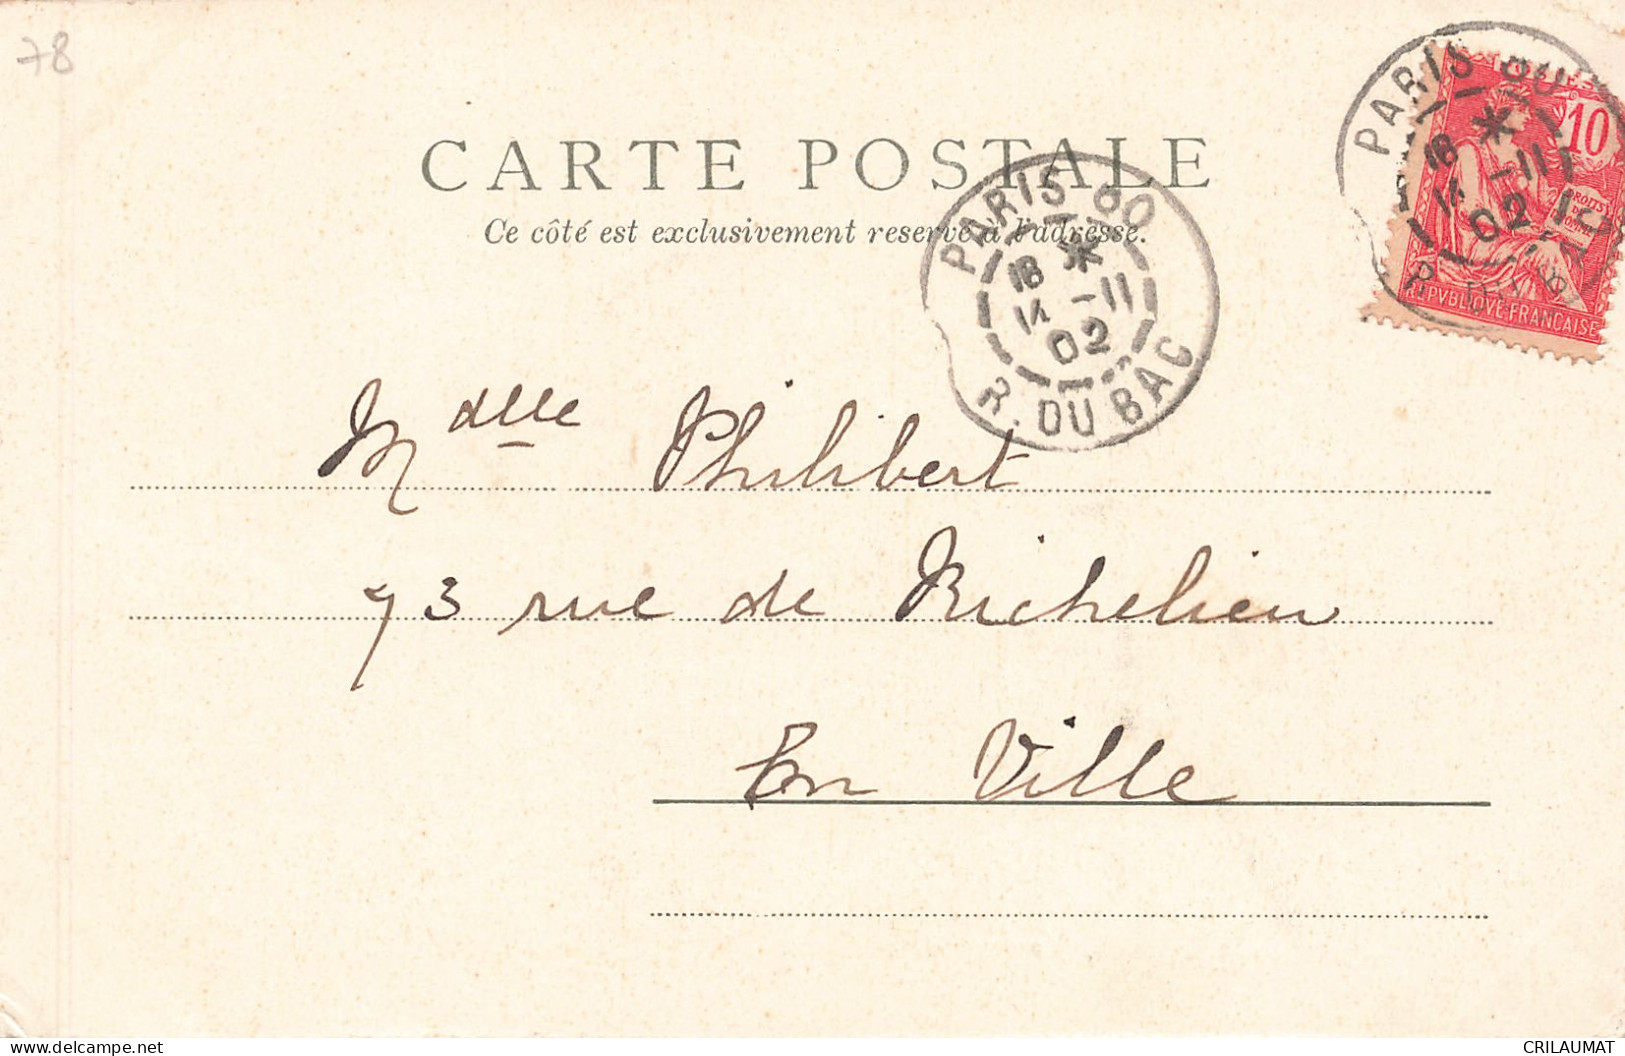 78
CARTE POSTALE
Ce côté est exclusivement reservé à l'adresse.
PARIS 60
18 *
14 -11
02
R. DU BAC
PARIS 60
18 *
14 -11
02
R. DU BAC
POSTES
10
DROITS
DE
L'HOMME
REPVBLIQVE FRANCAISE
Mdlle Philibert
73 rue de Richelieu
En Ville
www.delcampe.net
CRILAUMAT